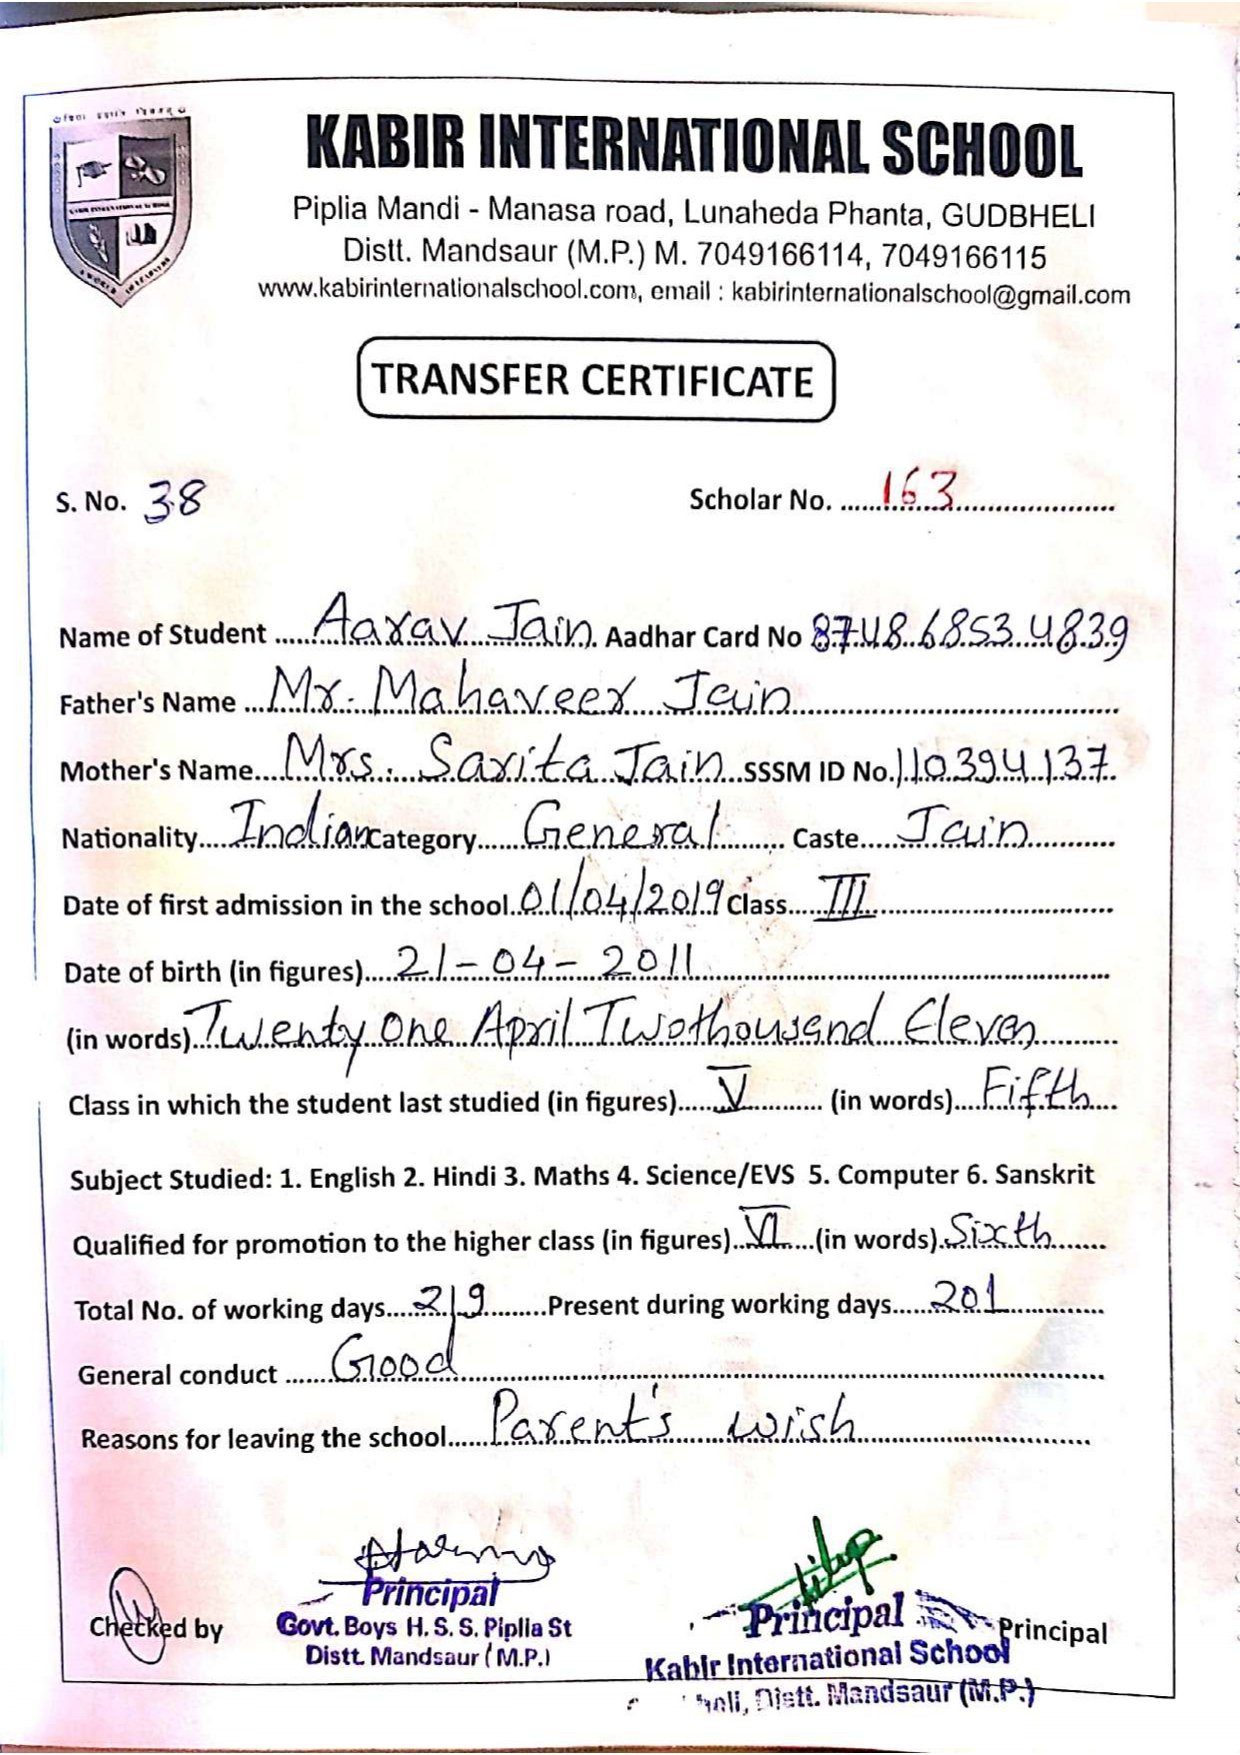 KABIR INTERNATIONAL SCHOOL
Piplia Mandi - Manasa road, Lunaheda Phanta, GUDBHELI
Distt. Mandsaur (M.P.) M. 7049166114, 7049166115
www.kabirinternationalschool.com, email : kabirinternationalschool@gmail.com
KABIR INTERNATIONAL SCHOOL
TRANSFER CERTIFICATE
S. No. 38 Scholar No. 163
Name of Student Aarav Jain Aadhar Card No 8748 6853 4839
Father's Name Mr. Mahaveer Jain
Mother's Name Mrs. Sarita Jain SSSM ID No. 110394137
Nationality Indian Category General Caste Jain
Date of first admission in the school 01/04/2019 Class III
Date of birth (in figures) 21-04-2011
(in words) Twenty one April Twothousand Eleven
Class in which the student last studied (in figures) V (in words) Fifth
Subject Studied: 1. English 2. Hindi 3. Maths 4. Science/EVS 5. Computer 6. Sanskrit
Qualified for promotion to the higher class (in figures) VI (in words) Sixth
Total No. of working days 219 Present during working days 201
General conduct Good
Reasons for leaving the school Parent's wish
Checked by
Principal
Govt. Boys H. S. S. Piplia St
Distt. Mandsaur (M.P.)
Principal
Kabir International School
Distt. Mandsaur (M.P.)
Principal